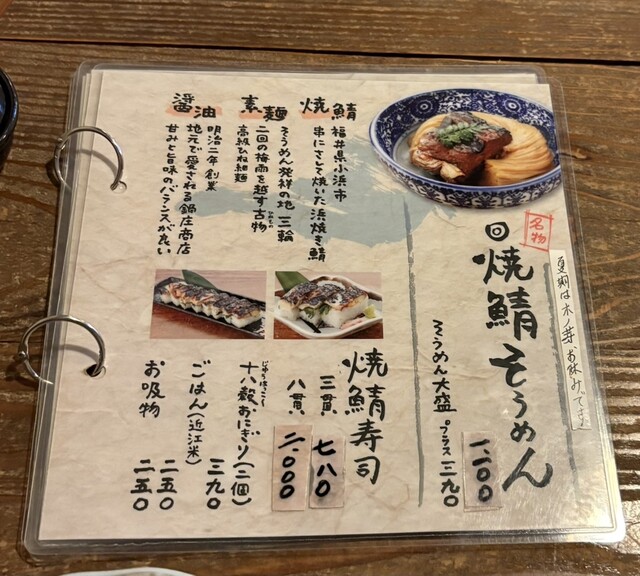 夏期は木ノ芽お休みです
名物
焼鯖そうめん
一、二〇〇
そうめん大盛 プラス 三九〇
焼鯖
福井県小浜市
串にさして焼いた浜焼き鯖
素麺
そうめん発祥の地 三輪
二回の梅雨を越す古物
高級ひね細麺
醤油
明治二年創業
地元で愛される鍋庄商店
甘みと旨味のバランスが良い
焼鯖寿司
三貫 七八〇
八貫 二、〇〇〇
十八穀おにぎり(二個) 三九〇
ごはん(近江米) 二五〇
お吸物 二五〇